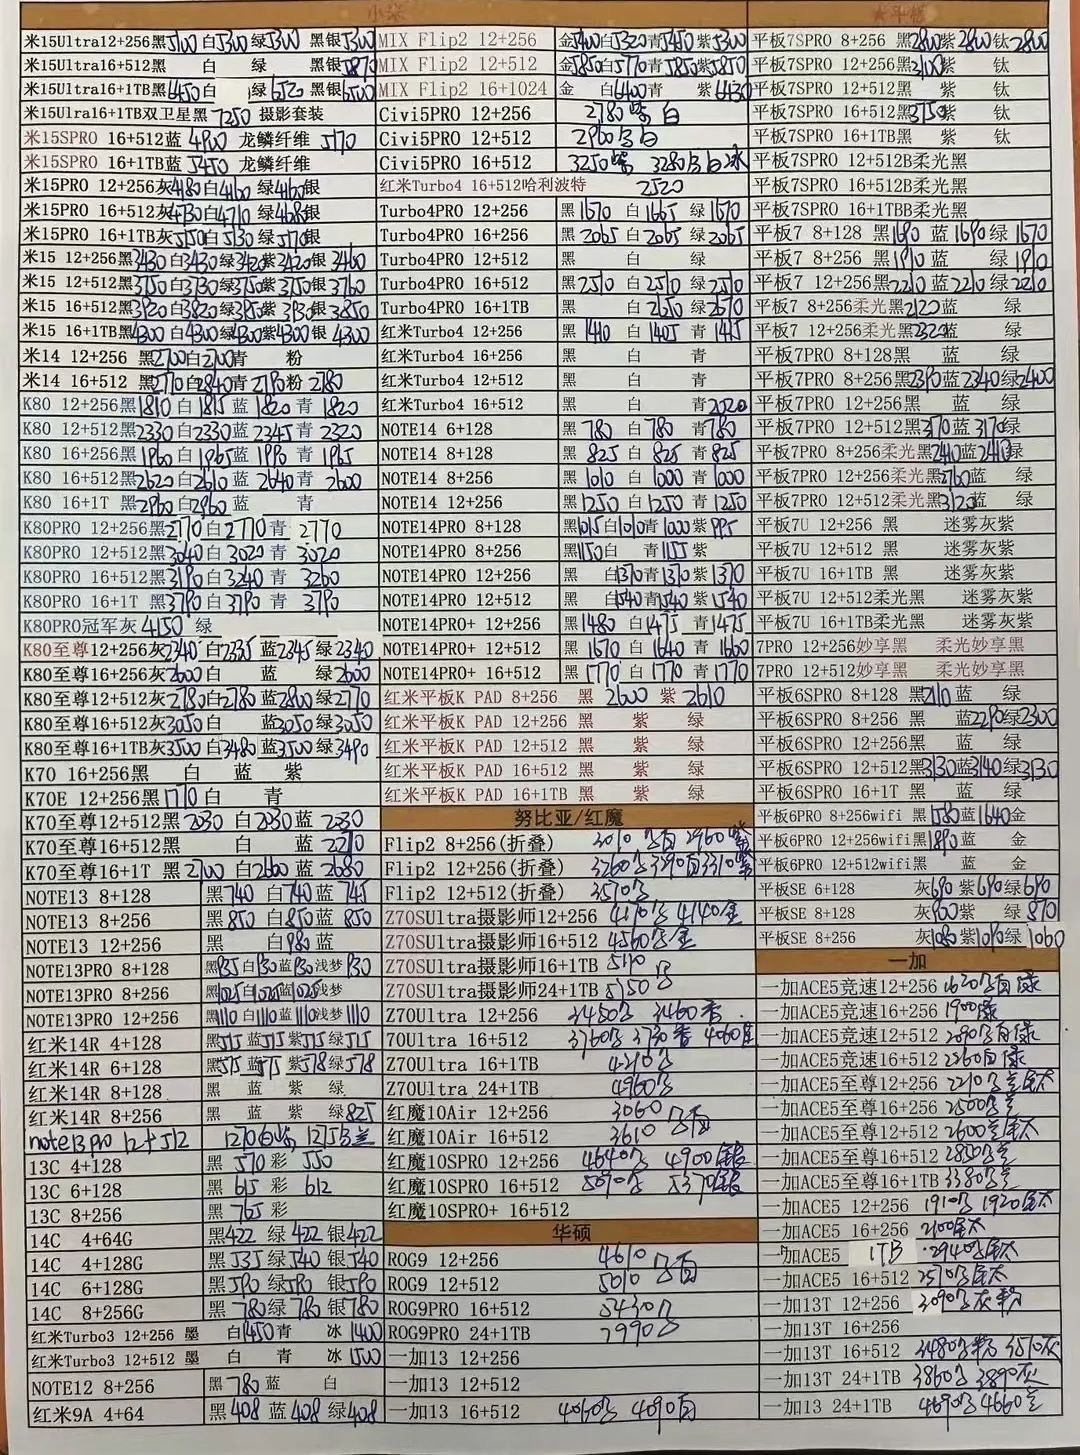 小米
米15Ultra12+256黑5100白5300绿5300 黑银5300
米15Ultra16+512黑 白 绿 黑银5870
米15Ultra16+1TB黑6450白 绿6520黑银6500
米15Ulra16+1TB双卫星黑7250 摄影套装
米15SPRO 16+512蓝 4900 龙鳞纤维 5170
米15SPRO 16+1TB蓝 5450 龙鳞纤维
米15PRO 12+256灰4180白4160 绿4160银
米15PRO 16+512灰4730白4710 绿4680银
米15PRO 16+1TB灰5150白5130 绿5170银
米15 12+256黑3430白3430绿3420紫3420银 3460
米15 12+512黑3750白3730绿3750紫3750银3760
米15 16+512黑3920白3820绿3850紫3930银3850
米15 16+1TB黑4300白4300绿4300紫4300银4300
米14 12+256 黑2700白2700青 粉
米14 16+512 黑2770白2840青2790粉2780
K80 12+256黑1810白1815蓝1820青1820
K80 12+512黑2330白2330蓝2345青2320
K80 16+256黑1960白1965蓝1990青1965
K80 16+512黑2620白2610蓝2640青2600
K80 16+1T 黑2960白2960蓝 青
K80PRO 12+256黑2770白2770青 2770
K80PRO 12+512黑3040白3020青 3020
K80PRO 16+512黑3190白3240青 3260
K80PRO 16+1T 黑3790白3790青 3790
K80PRO冠军灰 4150 绿
K80至尊12+256灰2340白2335蓝2345绿2340
K80至尊16+256灰2600白 蓝 绿2600
K80至尊12+512灰2780白2780蓝2800绿2770
K80至尊16+512灰3050白 蓝3050绿3050
K80至尊16+1TB灰3500白3480蓝3500绿3490
K70 16+256黑 白 蓝 紫
K70E 12+256黑1710白 青
K70至尊12+512黑2030 白2030蓝 2030
K70至尊16+512黑 白 蓝 2270
K70至尊16+1T 黑2700白2660蓝 2680
NOTE13 8+128 黑740 白740蓝 745
NOTE13 8+256 黑850 白850蓝 850
NOTE13 12+256 黑 白980蓝
NOTE13PRO 8+128 黑935白930蓝930浅梦930
NOTE13PRO 8+256 黑1025白1025蓝1025浅梦
NOTE13PRO 12+256 黑1110白1110蓝1110浅梦1110
红米14R 4+128 黑515蓝515紫515绿515
红米14R 6+128 黑575蓝575紫578绿578
红米14R 8+128 黑 蓝 紫 绿
红米14R 8+256 黑 蓝 紫 绿825
note13pro 12+512 1270白 1275
13C 4+128 黑 570彩 550
13C 6+128 黑 615 彩 612
13C 8+256 黑 765彩
14C 4+64G 黑422 绿422银422
14C 4+128G 黑535绿540银540
14C 6+128G 黑590绿590银590
14C 8+256G 黑780绿780银780
红米Turbo3 12+256 墨 白1450青 冰1400
红米Turbo3 12+512 墨 白 青 冰1500
NOTE12 8+256 黑780蓝 白
红米9A 4+64 黑408蓝408绿408
MIX Flip2 12+256 金5400白5320青5450紫5300
MIX Flip2 12+512 金5850白5770青5850紫5850
MIX Flip2 16+1024 金 白6400青 紫6430
Civi5PRO 12+256 2780 紫 白
Civi5PRO 12+512 2960 白
Civi5PRO 16+512 3250紫 3280 白冰
红米Turbo4 16+512哈利波特 2520
Turbo4PRO 12+256 黑1670 白1665绿1670
Turbo4PRO 16+256 黑2065白2065绿2065
Turbo4PRO 12+512 黑 白 绿
Turbo4PRO 16+512 黑2510白2510绿2510
Turbo4PRO 16+1TB 黑 白2650绿2670
红米Turbo4 12+256 黑1410 白1405青1415
红米Turbo4 16+256 黑 白 青
红米Turbo4 12+512 黑 白 青
红米Turbo4 16+512 黑 白 青2020
NOTE14 6+128 黑780白780青780
NOTE14 8+128 黑825白825青825
NOTE14 8+256 黑1010白1000青1000
NOTE14 12+256 黑1250白1250青1250
NOTE14PRO 8+128 黑1015白1010青1000紫995
NOTE14PRO 8+256 黑1150白 青1155紫
NOTE14PRO 12+256 黑 白1370青1370紫1370
NOTE14PRO 12+512 黑 白1540青1540紫1540
NOTE14PRO+ 12+256 黑1480白1475青1475
NOTE14PRO+ 12+512 黑1670白1640青1660
NOTE14PRO+ 16+512 黑1770白1770青1770
红米平板K PAD 8+256 黑 2600 紫 2610
红米平板K PAD 12+256 黑 紫 绿
红米平板K PAD 12+512 黑 紫 绿
红米平板K PAD 16+512 黑 紫 绿
红米平板K PAD 16+1TB 黑 紫 绿
努比亚/红魔
Flip2 8+256(折叠) 3010 白 2960紫
Flip2 12+256(折叠) 3260 3390白3310紫
Flip2 12+512(折叠) 3510
Z70SUltra摄影师12+256 4170 4140金
Z70SUltra摄影师16+512 4560 金
Z70SUltra摄影师16+1TB 5110
Z70SUltra摄影师24+1TB 5750
Z70Ultra 12+256 3450 3460
70Ultra 16+512 3760 3730 4060
Z70Ultra 16+1TB 4210
Z70Ultra 24+1TB 4960
红魔10Air 12+256 3060
红魔10Air 16+512 3610
红魔10SPRO 12+256 4640 4900银
红魔10SPRO 16+512 5090 5370银
红魔10SPRO+ 16+512
华硕
ROG9 12+256 4610 白
ROG9 12+512 5010
ROG9PRO 16+512 5430
ROG9PRO 24+1TB 7990
一加13 12+256
一加13 12+512
一加13 16+512 4060 4090白
平板7SPRO 8+256 黑2800紫2800钛2800
平板7SPRO 12+256黑3100紫 钛
平板7SPRO 12+512黑 紫 钛
平板7SPRO 16+512黑3750紫 钛
平板7SPRO 16+1TB黑 紫 钛
平板7SPRO 12+512B柔光黑
平板7SPRO 16+512B柔光黑
平板7SPRO 16+1TBB柔光黑
平板7 8+128 黑1690 蓝1690绿1670
平板7 8+256 黑1910蓝 绿1910
平板7 12+256黑2210蓝2210绿2210
平板7 8+256柔光黑2120蓝 绿
平板7 12+256柔光黑2320蓝 绿
平板7PRO 8+128黑 蓝 绿
平板7PRO 8+256黑2390蓝2340绿2400
平板7PRO 12+256黑 蓝 绿
平板7PRO 12+512黑3170蓝3170绿
平板7PRO 8+256柔光黑2410蓝2410绿
平板7PRO 12+256柔光黑2760蓝 绿
平板7PRO 12+512柔光黑3120蓝 绿
平板7U 12+256 黑 迷雾灰紫
平板7U 12+512 黑 迷雾灰紫
平板7U 16+1TB 黑 迷雾灰紫
平板7U 12+512柔光黑 迷雾灰紫
平板7U 16+1TB柔光黑 迷雾灰紫
7PRO 12+256妙享黑 柔光妙享黑
7PRO 12+512妙享黑 柔光妙享黑
平板6SPRO 8+128 黑2110蓝 绿
平板6SPRO 8+256 黑 蓝2290绿2300
平板6SPRO 12+256黑 蓝 绿
平板6SPRO 12+512黑3130蓝3140绿3130
平板6SPRO 16+1T 黑 蓝 绿
平板6PRO 8+256wifi 黑1580蓝1640金
平板6PRO 12+256wifi黑1890蓝 金
平板6PRO 12+512wifi黑 蓝 金
平板SE 6+128 灰690紫690绿690
平板SE 8+128 灰900紫 绿870
平板SE 8+256 灰1080紫1090绿1060
一加
一加ACE5竞速12+256 1620 白绿
一加ACE5竞速16+256 1900绿
一加ACE5竞速12+512 2090 白绿
一加ACE5竞速16+512 2260白绿
一加ACE5至尊12+256 2210 钛
一加ACE5至尊16+256 2500
一加ACE5至尊12+512 2600 钛
一加ACE5至尊16+512 2850
一加ACE5至尊16+1TB 3380
一加ACE5 12+256 1910 1920钛
一加ACE5 16+256 2100钛
一加ACE5 1TB 2940 钛
一加ACE5 16+512 2510 钛
一加13T 12+256 3090 灰粉
一加13T 16+256
一加13T 16+512 3480 粉 3510灰
一加13T 24+1TB 3860 3890灰
一加13 24+1TB 4690 4660